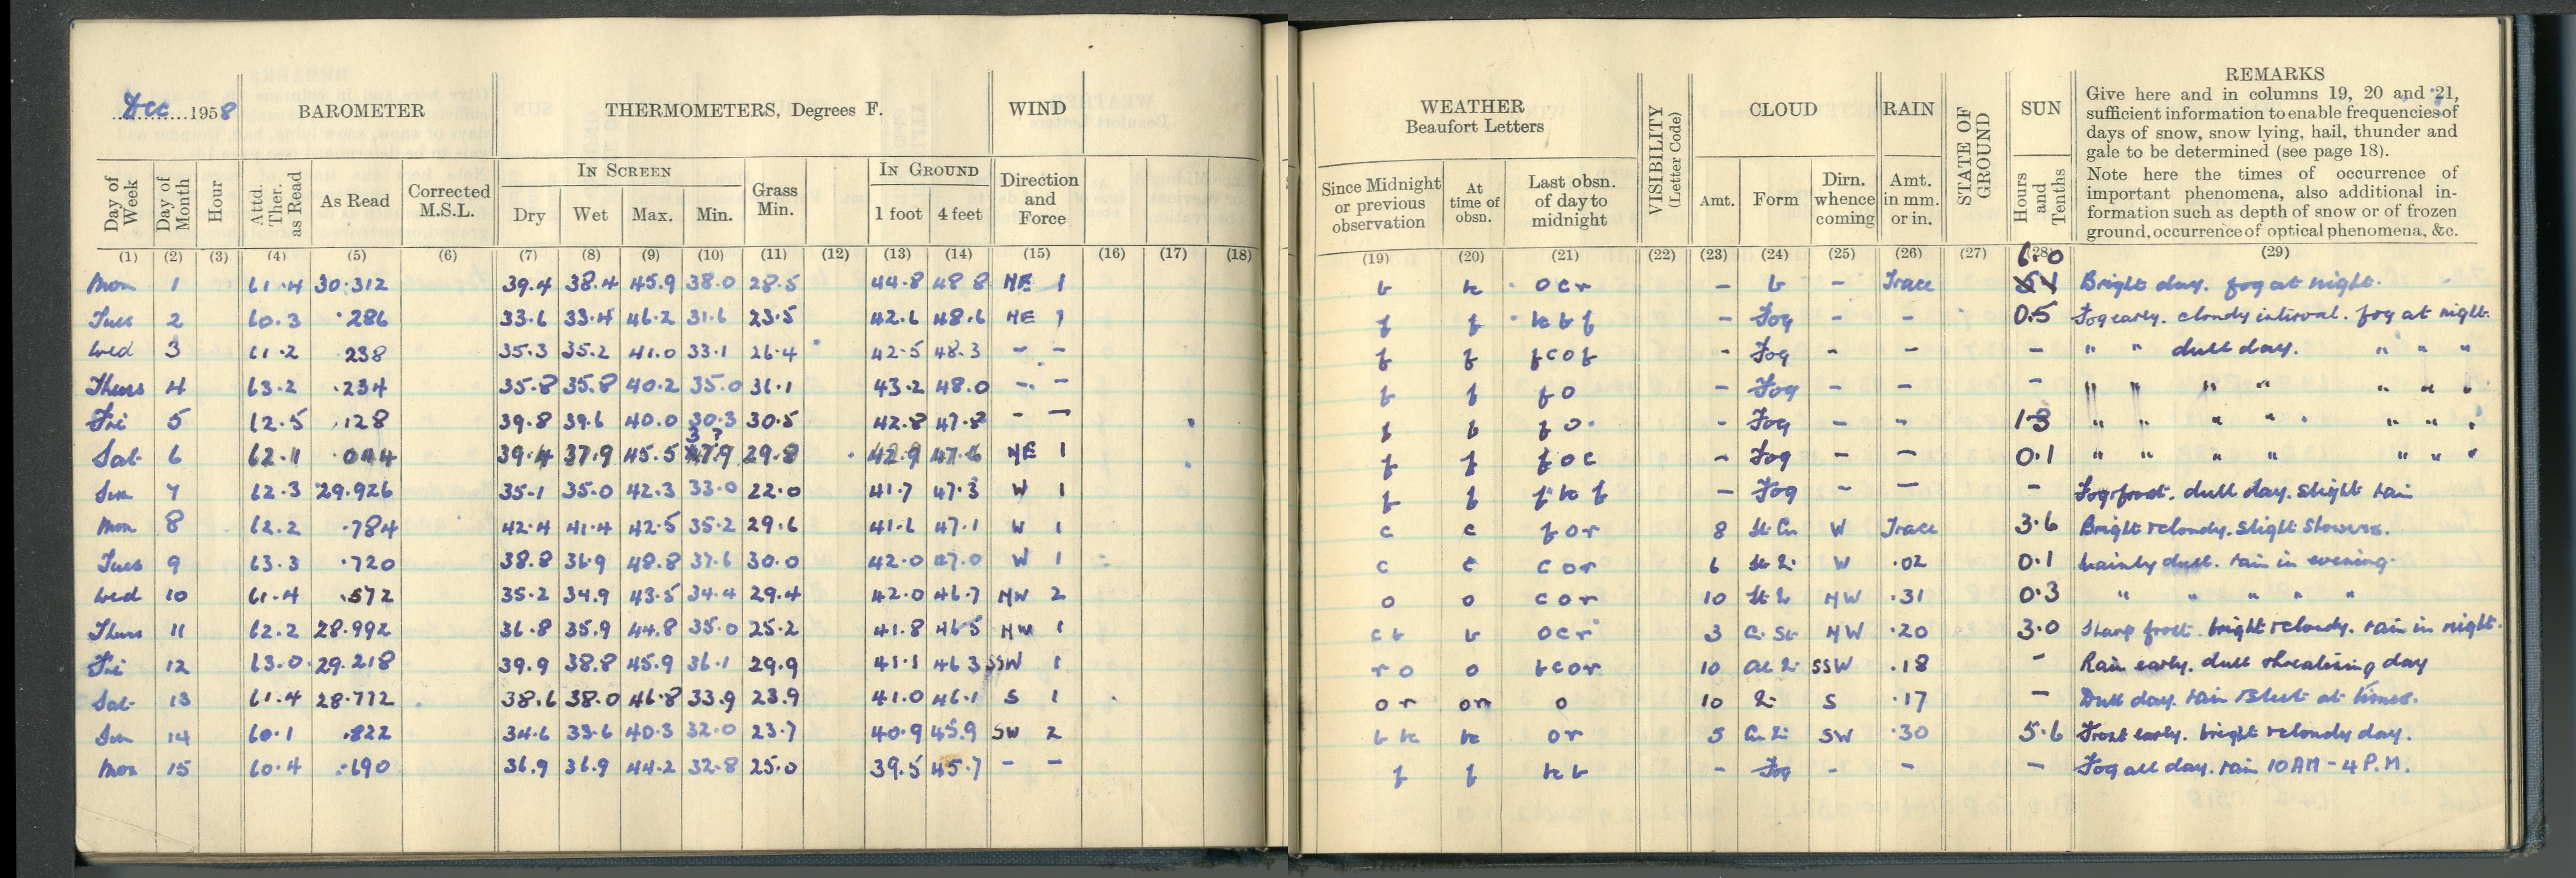 Dec 1958 BAROMETER THERMOMETERS, Degrees F. WIND
Day of Week Day of Month Hour Attd. Ther. as Read As Read Corrected M.S.L. IN SCREEN Dry Wet Max. Min. Grass Min. IN GROUND 1 foot 4 feet Direction and Force
(1) (2) (3) (4) (5) (6) (7) (8) (9) (10) (11) (12) (13) (14) (15) (16) (17) (18)
Mon 1 61.4 30.312 39.4 38.4 45.9 38.0 28.5 44.8 48 8 NE 1
Tues 2 60.3 .286 33.6 33.4 46.2 31.6 23.5 42.6 48.6 NE 1
Wed 3 61.2 238 35.3 35.2 41.0 33.1 26.4 42.5 48.3 - -
Thurs 4 63.2 .234 35.8 35.8 40.2 35.0 31.1 43.2 48.0 - -
Fri 5 62.5 .128 39.8 39.6 40.0 30.3 30.5 42.8 47.8 - -
Sat 6 62.11 39.4 37.9 45.5 37.9 ? 29.8 42.9 47.6 NE 1
Sun 7 62.3 29.926 35.1 35.0 42.3 33.0 22.0 41.7 47.3 W 1
Mon 8 62.2 .784 42.4 41.4 42.5 35.2 29.6 41.6 47.1 W 1
Tues 9 63.3 .720 38.8 36.9 48.8 37.6 30.0 42.0 47.0 W 1
Wed 10 61.4 .572 35.2 34.9 43.5 34.4 29.4 42.0 46.7 NW 2
Thurs 11 62.2 28.992 36.8 35.9 44.8 35.0 25.2 41.8 46.5 NW 1
Fri 12 63.0 29.218 39.9 38.8 45.9 36.1 29.9 41.1 46 3 SSW 1
Sat 13 61.4 28.772 38.6 38.0 46.8 33.9 23.9 41.0 46.1 S 1
Sun 14 60.1 .822 34.6 33.6 40.3 32.0 23.7 40.9 45.9 SW 2
Mon 15 60.4 .690 36.9 36.9 44.2 32.8 25.0 39.5 45.7 - -
WEATHER Beaufort Letters VISIBILITY (Letter Code) CLOUD RAIN STATE OF GROUND SUN REMARKS
Give here and in columns 19, 20 and 21,
sufficient information to enable frequencies of
days of snow, snow lying, hail, thunder and
gale to be determined (see page 18).
Note here the times of occurrence of
important phenomena, also additional in-
formation such as depth of snow or of frozen
ground, occurrence of optical phenomena, &c.
Since Midnight or previous observation At time of obsn. Last obsn. of day to midnight Amt. Form Dirn. whence coming Amt. in mm. or in. Hours and Tenths
(19) (20) (21) (22) (23) (24) (25) (26) (27) (28) (29)
6.0
b bc ocr - b - Trace Bright day. fog at night.
f f bc b f - Fog - - 0.5 Fog early. cloudy interval. fog at night.
f f fcof - Fog - - - " " dull day. " " "
f f fo - Fog - - - " " " " " " "
f f fo. - Fog - - 1.3 " " " " " " "
f f foc - Fog - - 0.1 " " " " " " "
f f f bc f - Fog - - - Fog & frost. dull day. slight rain
c c for 8 St. Cu W Trace 3.6 Bright & cloudy. slight showers.
c c cor 6 W .02 0.1 Mainly dull. rain in evening.
o o cor 10 NW .31 0.3 " " " " "
cb b ocr 3 Ci. St. NW .20 3.0 Sharp frost. bright & cloudy. rain in night.
ro o bcor 10 SSW .18 - Rain early. dull threatening day
or or o 10 S .17 - Dull day. rain & sleet at times.
b bc bc or 5 SW .30 5.6 Frost early. bright & cloudy day.
f f bc b - Fog - - - Fog all day. rain 10 AM - 4 P.M.